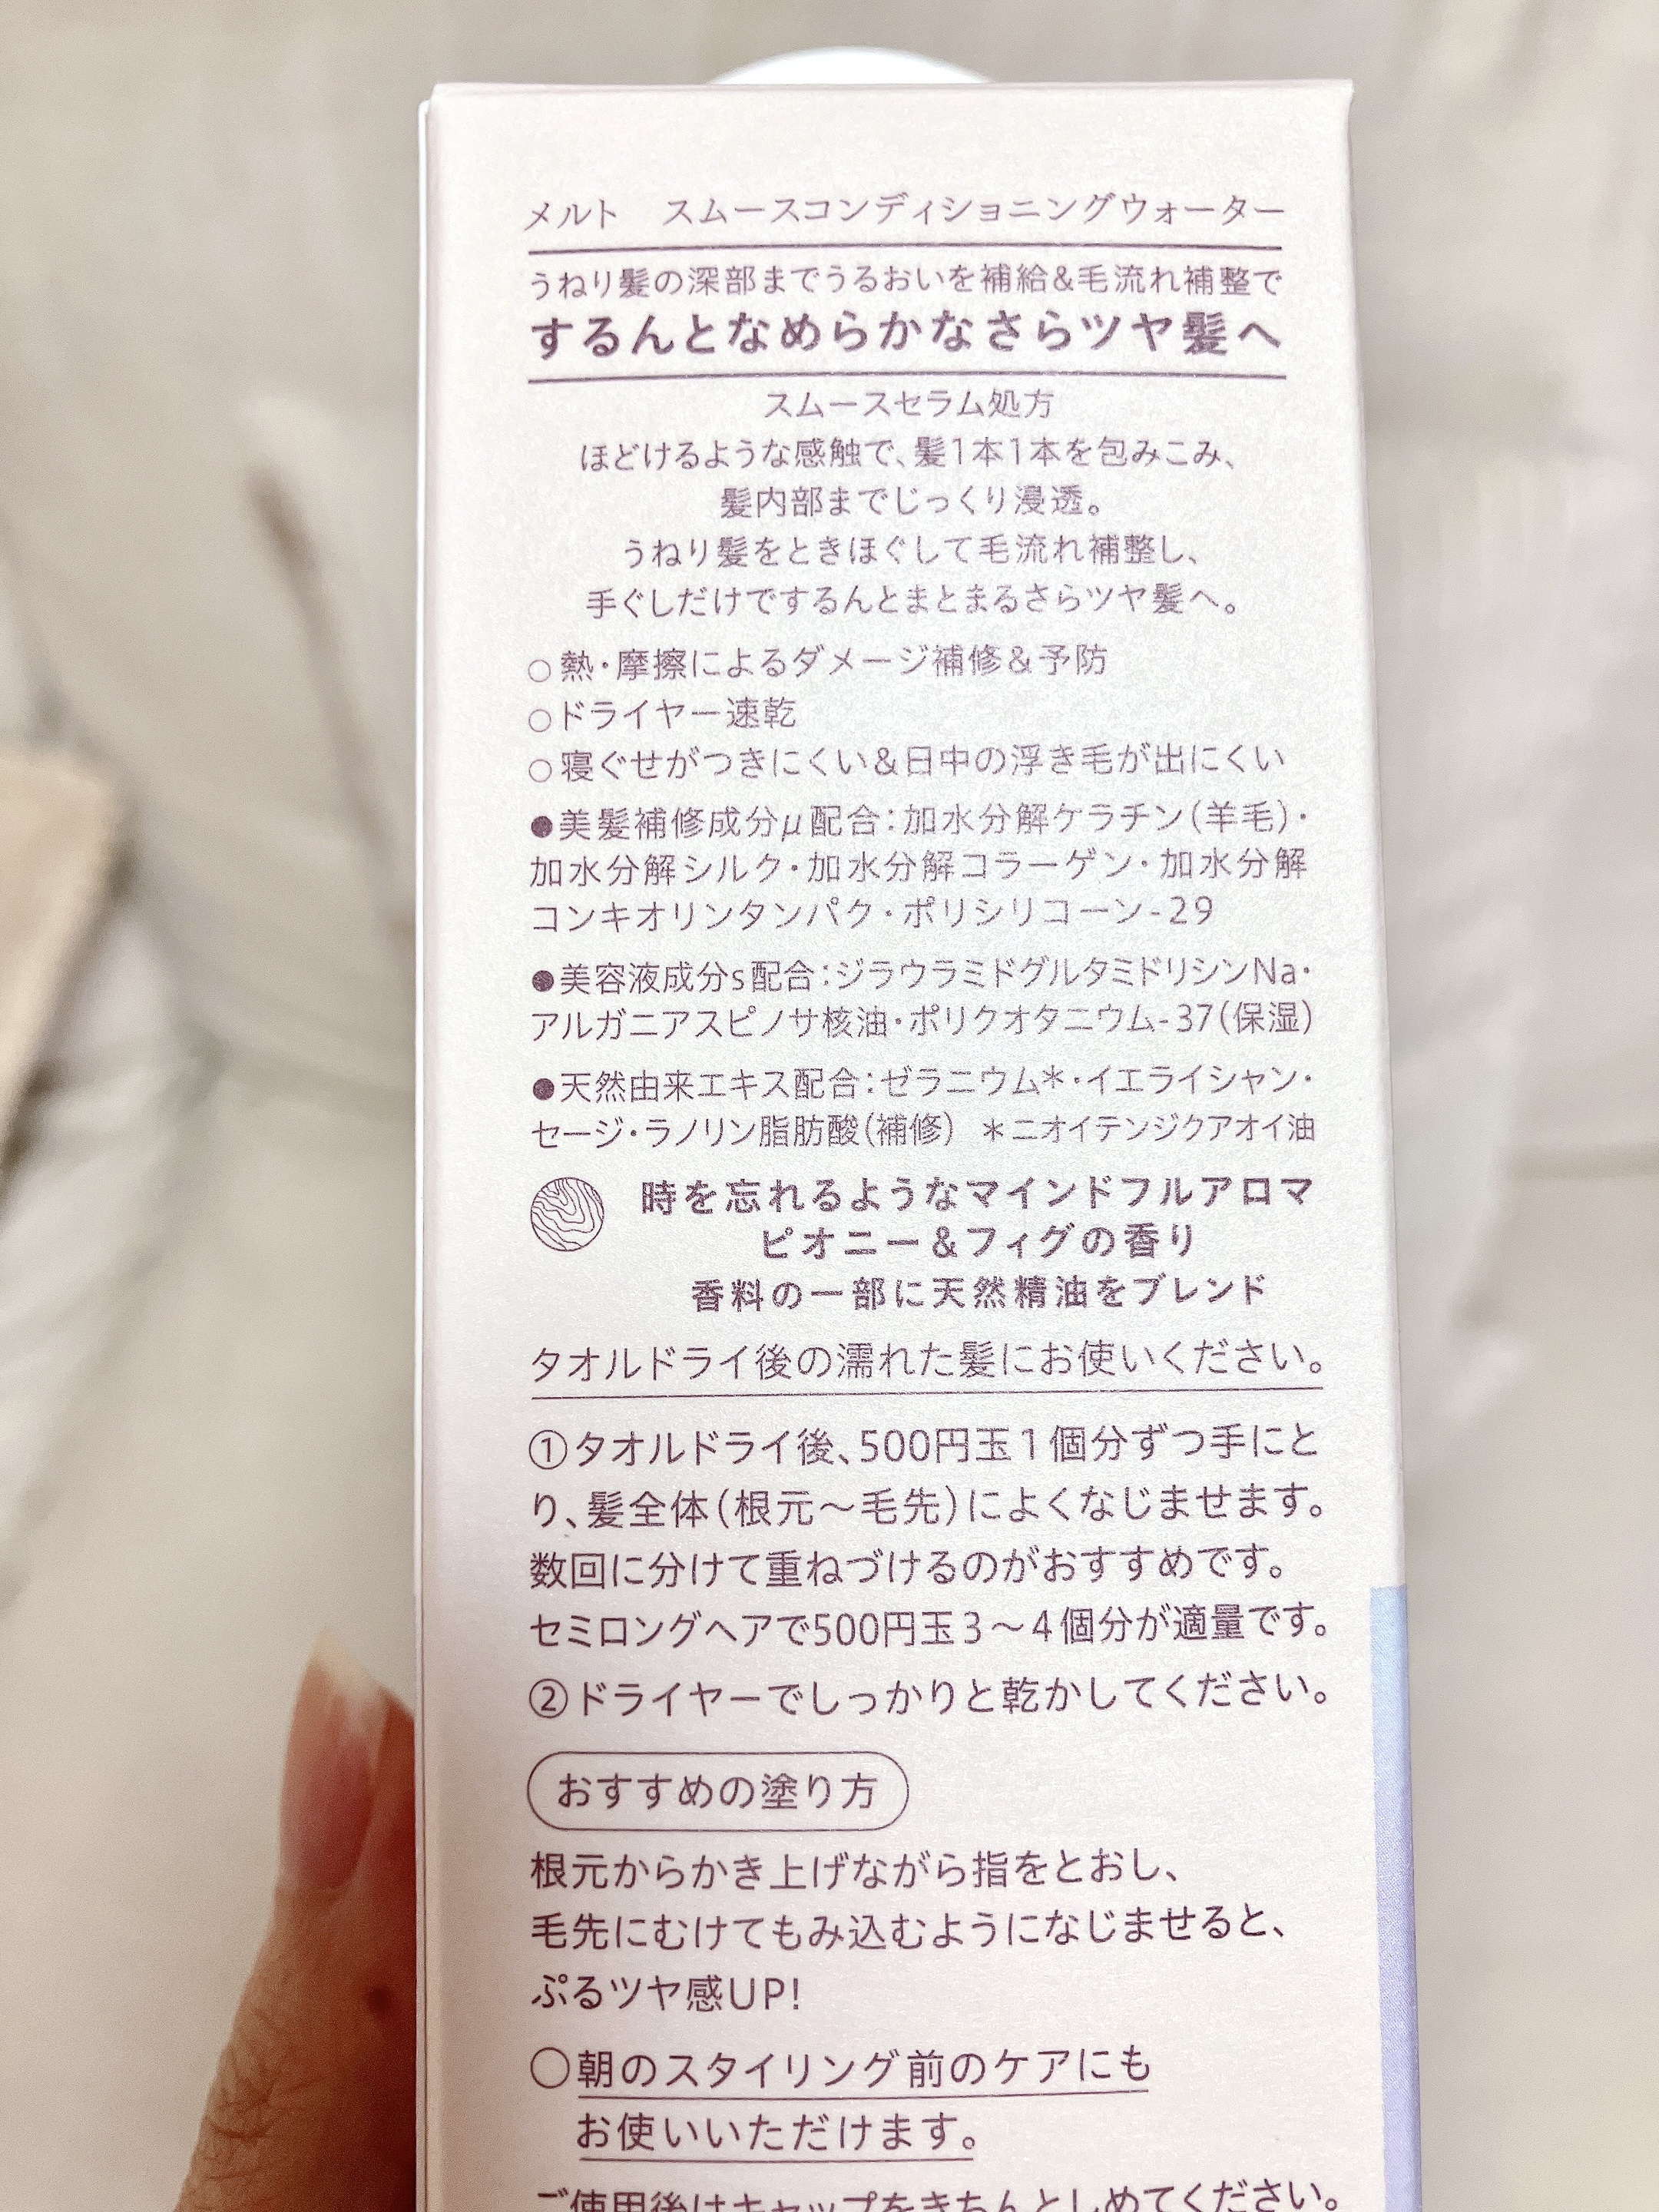 メルト　スムースコンディショニングウォーター
うねり髪の深部までうるおいを補給&毛流れ補整で
するんとなめらかなさらツヤ髪へ
スムースセラム処方
ほどけるような感触で、髪1本1本を包みこみ、
髪内部までじっくり浸透。
うねり髪をときほぐして毛流れ補整し、
手ぐしだけでするんとまとまるさらツヤ髪へ。
○熱・摩擦によるダメージ補修&予防
○ドライヤー速乾
○寝ぐせがつきにくい&日中の浮き毛が出にくい
●美髪補修成分μ配合：加水分解ケラチン(羊毛)・
加水分解シルク・加水分解コラーゲン・加水分解
コンキオリンタンパク・ポリシリコーン-29
●美容液成分s配合：ジラウラミドグルタミドリシンNa・
アルガニアスピノサ核油・ポリクオタニウム-37(保湿)
●天然由来エキス配合：ゼラニウム＊・イエライシャン・
セージ・ラノリン脂肪酸(補修)　＊ニオイテンジクアオイ油
時を忘れるようなマインドフルアロマ
ピオニー&フィグの香り
香料の一部に天然精油をブレンド
タオルドライ後の濡れた髪にお使いください。
①タオルドライ後、500円玉1個分ずつ手にと
り、髪全体(根元～毛先)によくなじませます。
数回に分けて重ねづけるのがおすすめです。
セミロングヘアで500円玉3～4個分が適量です。
②ドライヤーでしっかりと乾かしてください。
おすすめの塗り方
根元からかき上げながら指をとおし、
毛先にむけてもみ込むようになじませると、
ぷるツヤ感UP!
○朝のスタイリング前のケアにも
お使いいただけます。
ご使用後はキャップをきちんとしめてください。